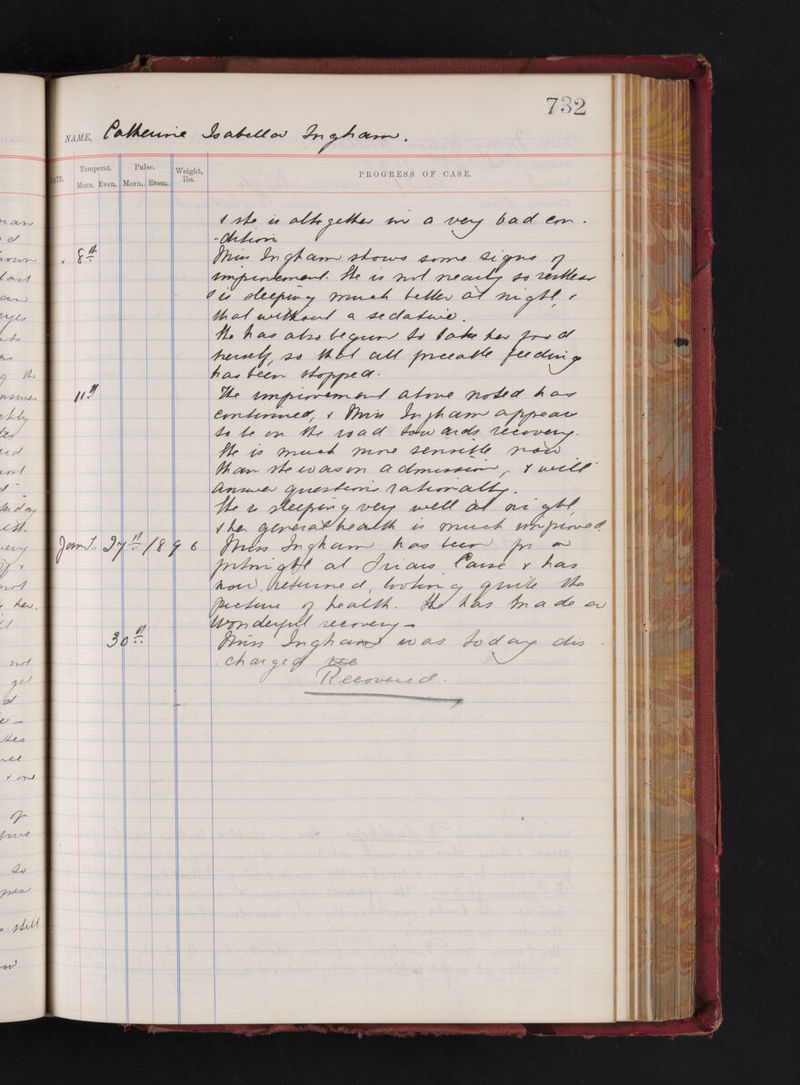 732
NAME, Catherine Isabella Ingham.
DATE. Temperat. Pulse. Weight, lbs. PROGRESS OF CASE.
Morn. Even. Morn. Even.
& she is altogether in a very bad con-
-dition
8th Miss Ingham shows some signs of
improvement. She is not nearly so restless
& is sleeping much better at night, &
that without a sedative.
She has also begun to take her food
herself, so that all forceable feeding
has been stopped.
11th The improvement above noted has
continued, & Miss Ingham appears
to be on the road towards recovery.
She is much more sensible now
than she was on admission, & will
answer questions rationally.
She is sleeping very well at night,
& her general health is much improved.
Jany. 27th 1896 Miss Ingham has been for a
fortnight at Friars Carse & has
now returned, looking quite the
picture of health. She has made a
wonderful recovery -
30th Miss Ingham was today dis-
charged
Recovered.